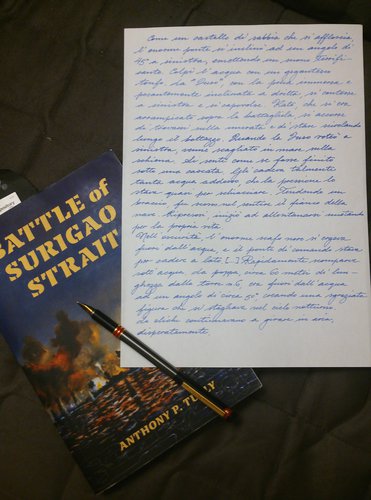 Come un castello di sabbia che si affloscia,
l'enorme ponte si inclinò ad un angolo di
45° a sinistra, emettendo un suono terrifi-
cante. Colpì l'acqua con un gigantesco
tonfo. La "Fuso" con la prua immersa e
pesantemente inclinata a dritta, si contorse
a sinistra e si capovolse. Kato, che si era
arrampicato sopra la battagliola, si accorse
di trovarsi sulla murata e di stare scivolando
lungo il bottazzo. Quando la Fuso rotò a
sinistra, venne scagliato in mare sulla
schiena. Si sentì come se fosse finito
sotto una cascata. Gli cadeva talmente
tanta acqua addosso che la pressione lo
stava quasi per schiacciare. Stendendo un
braccio fu in grado di sentire il fianco della
nave. Ripresosi iniziò ad allontanarsi nuotando
per la propria vita.
Nell'oscurità, l'enorme scafo nero si ergeva
fuori dall'acqua, e il ponte di comando stava
per cadere a lato [...] Rapidamente scomparve
sott'acqua. La poppa, circa 60 metri di lun-
ghezza dalla torre n. 6, era fuori dall'acqua
ad un angolo di circa 50° creando una sgraziata
figura che si stagliava nel cielo notturno.
Le eliche continuavano a girare in aria,
disperatamente
BATTLE of
SURIGAO
STRAIT
ANTHONY P. TULLY